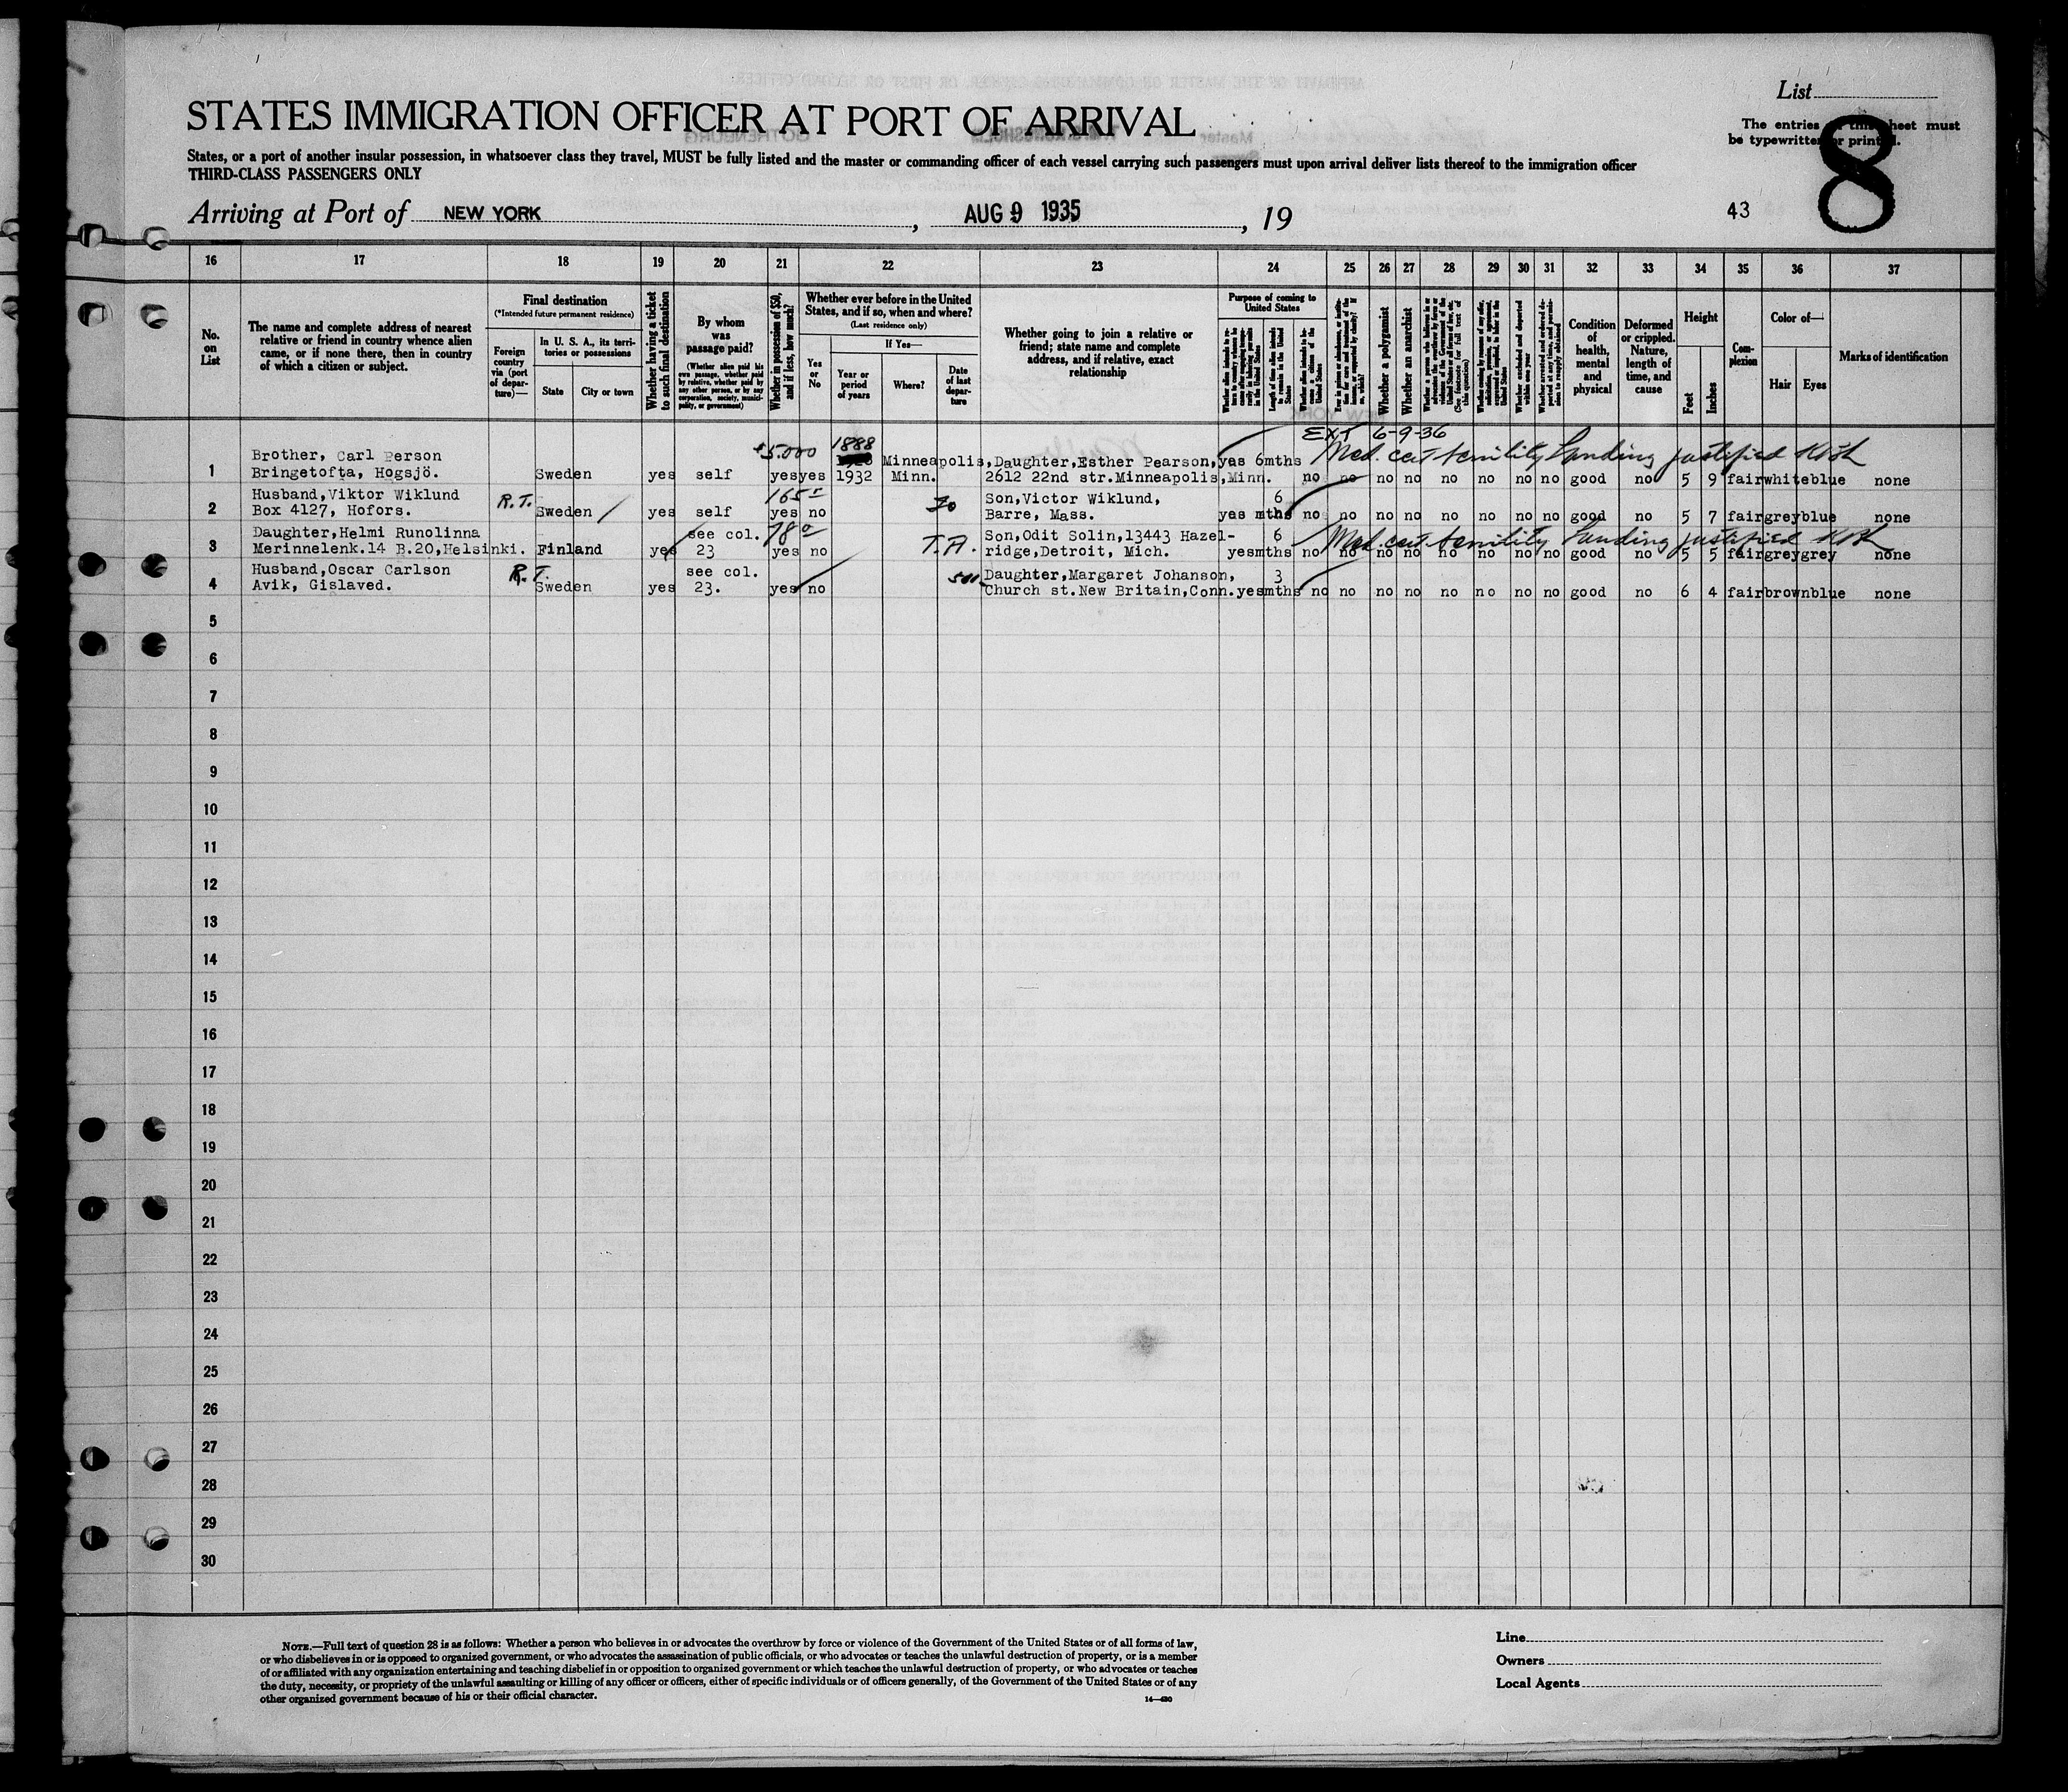 List
STATES IMMIGRATION OFFICER AT PORT OF ARRIVAL
The entries on this sheet must
be typewritten or printed.
8
States, or a port of another insular possession, in whatsoever class they travel, MUST be fully listed and the master or commanding officer of each vessel carrying such passengers must upon arrival deliver lists thereof to the immigration officer
THIRD-CLASS PASSENGERS ONLY
Arriving at Port of NEW YORK, AUG 9 1935, 19
43
16 17 18 19 20 21 22 23 24 25 26 27 28 29 30 31 32 33 34 35 36 37
No. on List
The name and complete address of nearest
relative or friend in country whence alien
came, or if none there, then in country
of which a citizen or subject.
Final destination
(*Intended future permanent residence)
Foreign country via (port of departure)—
In U. S. A., its territories or possessions
State
City or town
Whether having a ticket to such final destination
By whom was passage paid?
(Whether alien paid his own passage, whether paid by relative, whether paid by any other person, or by any corporation, society, municipality, or government)
Whether in possession of $50, and if less, how much?
Whether ever before in the United States, and if so, when and where?
(Last residence only)
Yes or No
If Yes—
Year or period of years
Where?
Date of last departure
Whether going to join a relative or
friend; state name and complete
address, and if relative, exact
relationship
Purpose of coming to United States
Length of time alien intends to remain in the United States
Whether a polygamist
Whether an anarchist
Condition of health, mental and physical
Deformed or crippled. Nature, length of time, and cause
Height
Feet
Inches
Complexion
Color of—
Hair
Eyes
Marks of identification
EXT 6-9-36
$5.000 1888
Med. cert senility Landing justified
Brother, Carl Person Minneapolis, Daughter, Esther Pearson, yes 6mths
1 Bringetofta, Hogsjö. Sweden yes self yes yes 1932 Minn. 2612 22nd str. Minneapolis, Minn. no no no no no no no no good no 5 9 fair white blue none
Husband, Viktor Wiklund R.T. 165 Son, Victor Wiklund, 6
2 Box 4127, Hofors. Sweden yes self yes no Barre, Mass. yes mths no no no no no no no no good no 5 7 fair grey blue none
Daughter, Helmi Runolinna see col. 78 Son, Odit Solin, 13443 Hazel- 6 Med. cert senility Landing justified
3 Merinnelenk. 14 B.20, Helsinki. Finland yes 23 yes no T.A. ridge, Detroit, Mich. yes mths no no no no no no no no good no 5 5 fair grey grey none
Husband, Oscar Carlson R.T. see col. Daughter, Margaret Johanson, 3
4 Avik, Gislaved. Sweden yes 23. yes no Church st. New Britain, Conn. yes mths no no no no no no no no good no 6 4 fair brown blue none
5
6
7
8
9
10
11
12
13
14
15
16
17
18
19
20
21
22
23
24
25
26
27
28
29
30
NOTE.—Full text of question 28 is as follows: Whether a person who believes in or advocates the overthrow by force or violence of the Government of the United States or of all forms of law,
or who disbelieves in or is opposed to organized government, or who advocates the assassination of public officials, or who advocates or teaches the unlawful destruction of property, or is a member
of or affiliated with any organization entertaining and teaching disbelief in or opposition to organized government or which teaches the unlawful destruction of property, or who advocates or teaches
the duty, necessity, or propriety of the unlawful assaulting or killing of any officer or officers, either of specific individuals or of officers generally, of the Government of the United States or of any
other organized government because of his or their official character.
Line
Owners
Local Agents